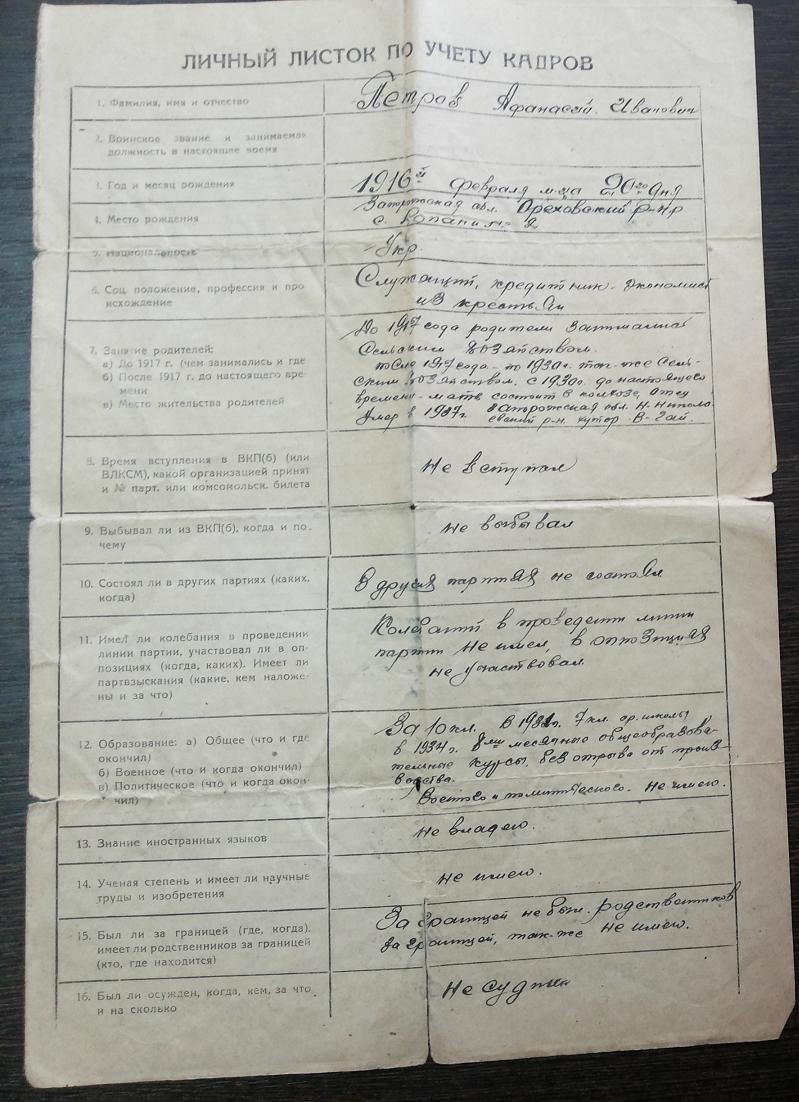 ЛИЧНЫЙ ЛИСТОК ПО УЧЕТУ КАДРОВ
1. Фамилия, имя и отчество
Петров Афанасий Иванович
2. Воинское звание и занимаемая
должность в настоящее время
3. Год и месяц рождения
1916й февраля м-ца 20го дня
4. Место рождения
обл. Ореховский р-н
с. Копани
5. Национальность
Укр.
6. Соц. положение, профессия и про
исхождение
Служащий, кредитник-экономист
из крестьян
7. Занятие родителей:
а) До 1917 г. (чем занимались и где
б) После 1917 г. до настоящего вре-
мени
в) Место жительства родителей
До 1917 года родители
Сельским хозяйством.
после 1917 года - по 1930г. так-же Сель-
ским хозяйством, с 1930г. до настоящего
времени - мать состоит в колхозе, отец
умер в обл. Н.
р-н. хутор В-Гай.
8. Время вступления в ВКП(б) (или
ВЛКСМ), какой организацией принят
и № парт. или комсомольск. билета
Не вступал
9. Выбывал ли из ВКП(б), когда и по-
чему
Не выбывал
10. Состоял ли в других партиях (каких,
когда)
В других партиях не состоял
11. Имел ли колебания в проведении
линии партии, участвовал ли в оп-
позициях (когда, каких). Имеет ли
партвзыскания (какие, кем наложе-
ны и за что)
Колебаний в проведении линии
партии не имел, в оппозициях
не участвовал.
12. Образование: а) Общее (что и где
окончил)
б) Военное (что и когда окончил)
в) Политическое (что и когда окон-
чил)
За 10 кл. В 7 кл. ср. школы
в 1934 г. месячные общеобразова-
тельные курсы, без отрыва от произ-
водства.
Военного и политического - не имею.
13. Знание иностранных языков
Не владею.
14. Ученая степень и имеет ли научные
труды и изобретения
не имею.
15. Был ли за границей (где, когда).
имеет ли родственников за границей
(кто, где находится)
За границей не был. родственников
за границей, так-же не имею.
16. Был ли осужден, когда, кем, за что
и на сколько
Не судим